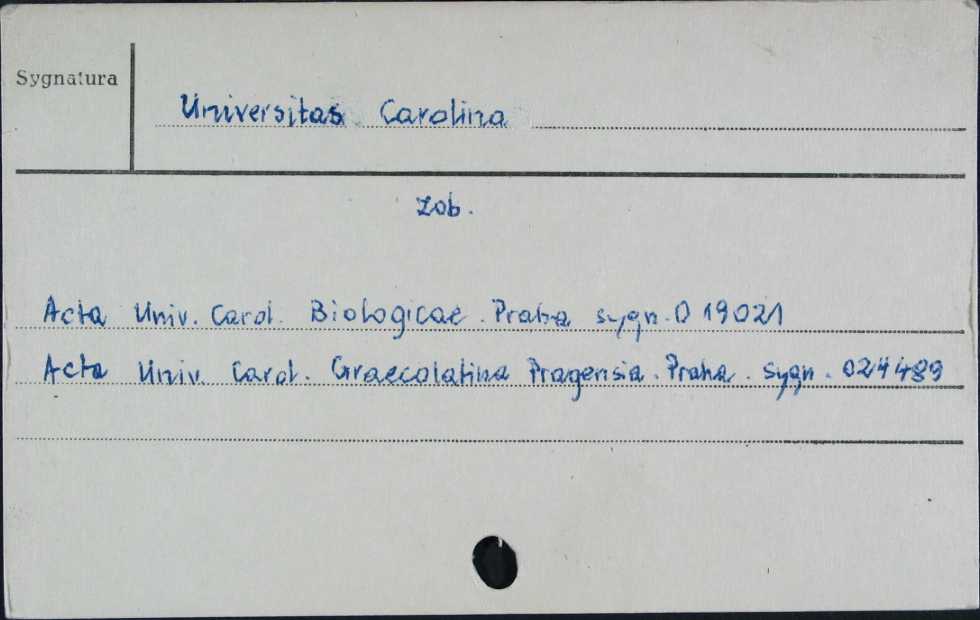 Sygnatura
Universitas Carolina
zob.
Acta Univ. Carol. Biologicae. Praha sygn. D 19021
Acta Univ. Carol. Graecolatina Pragensia. Praha. sygn. 024489